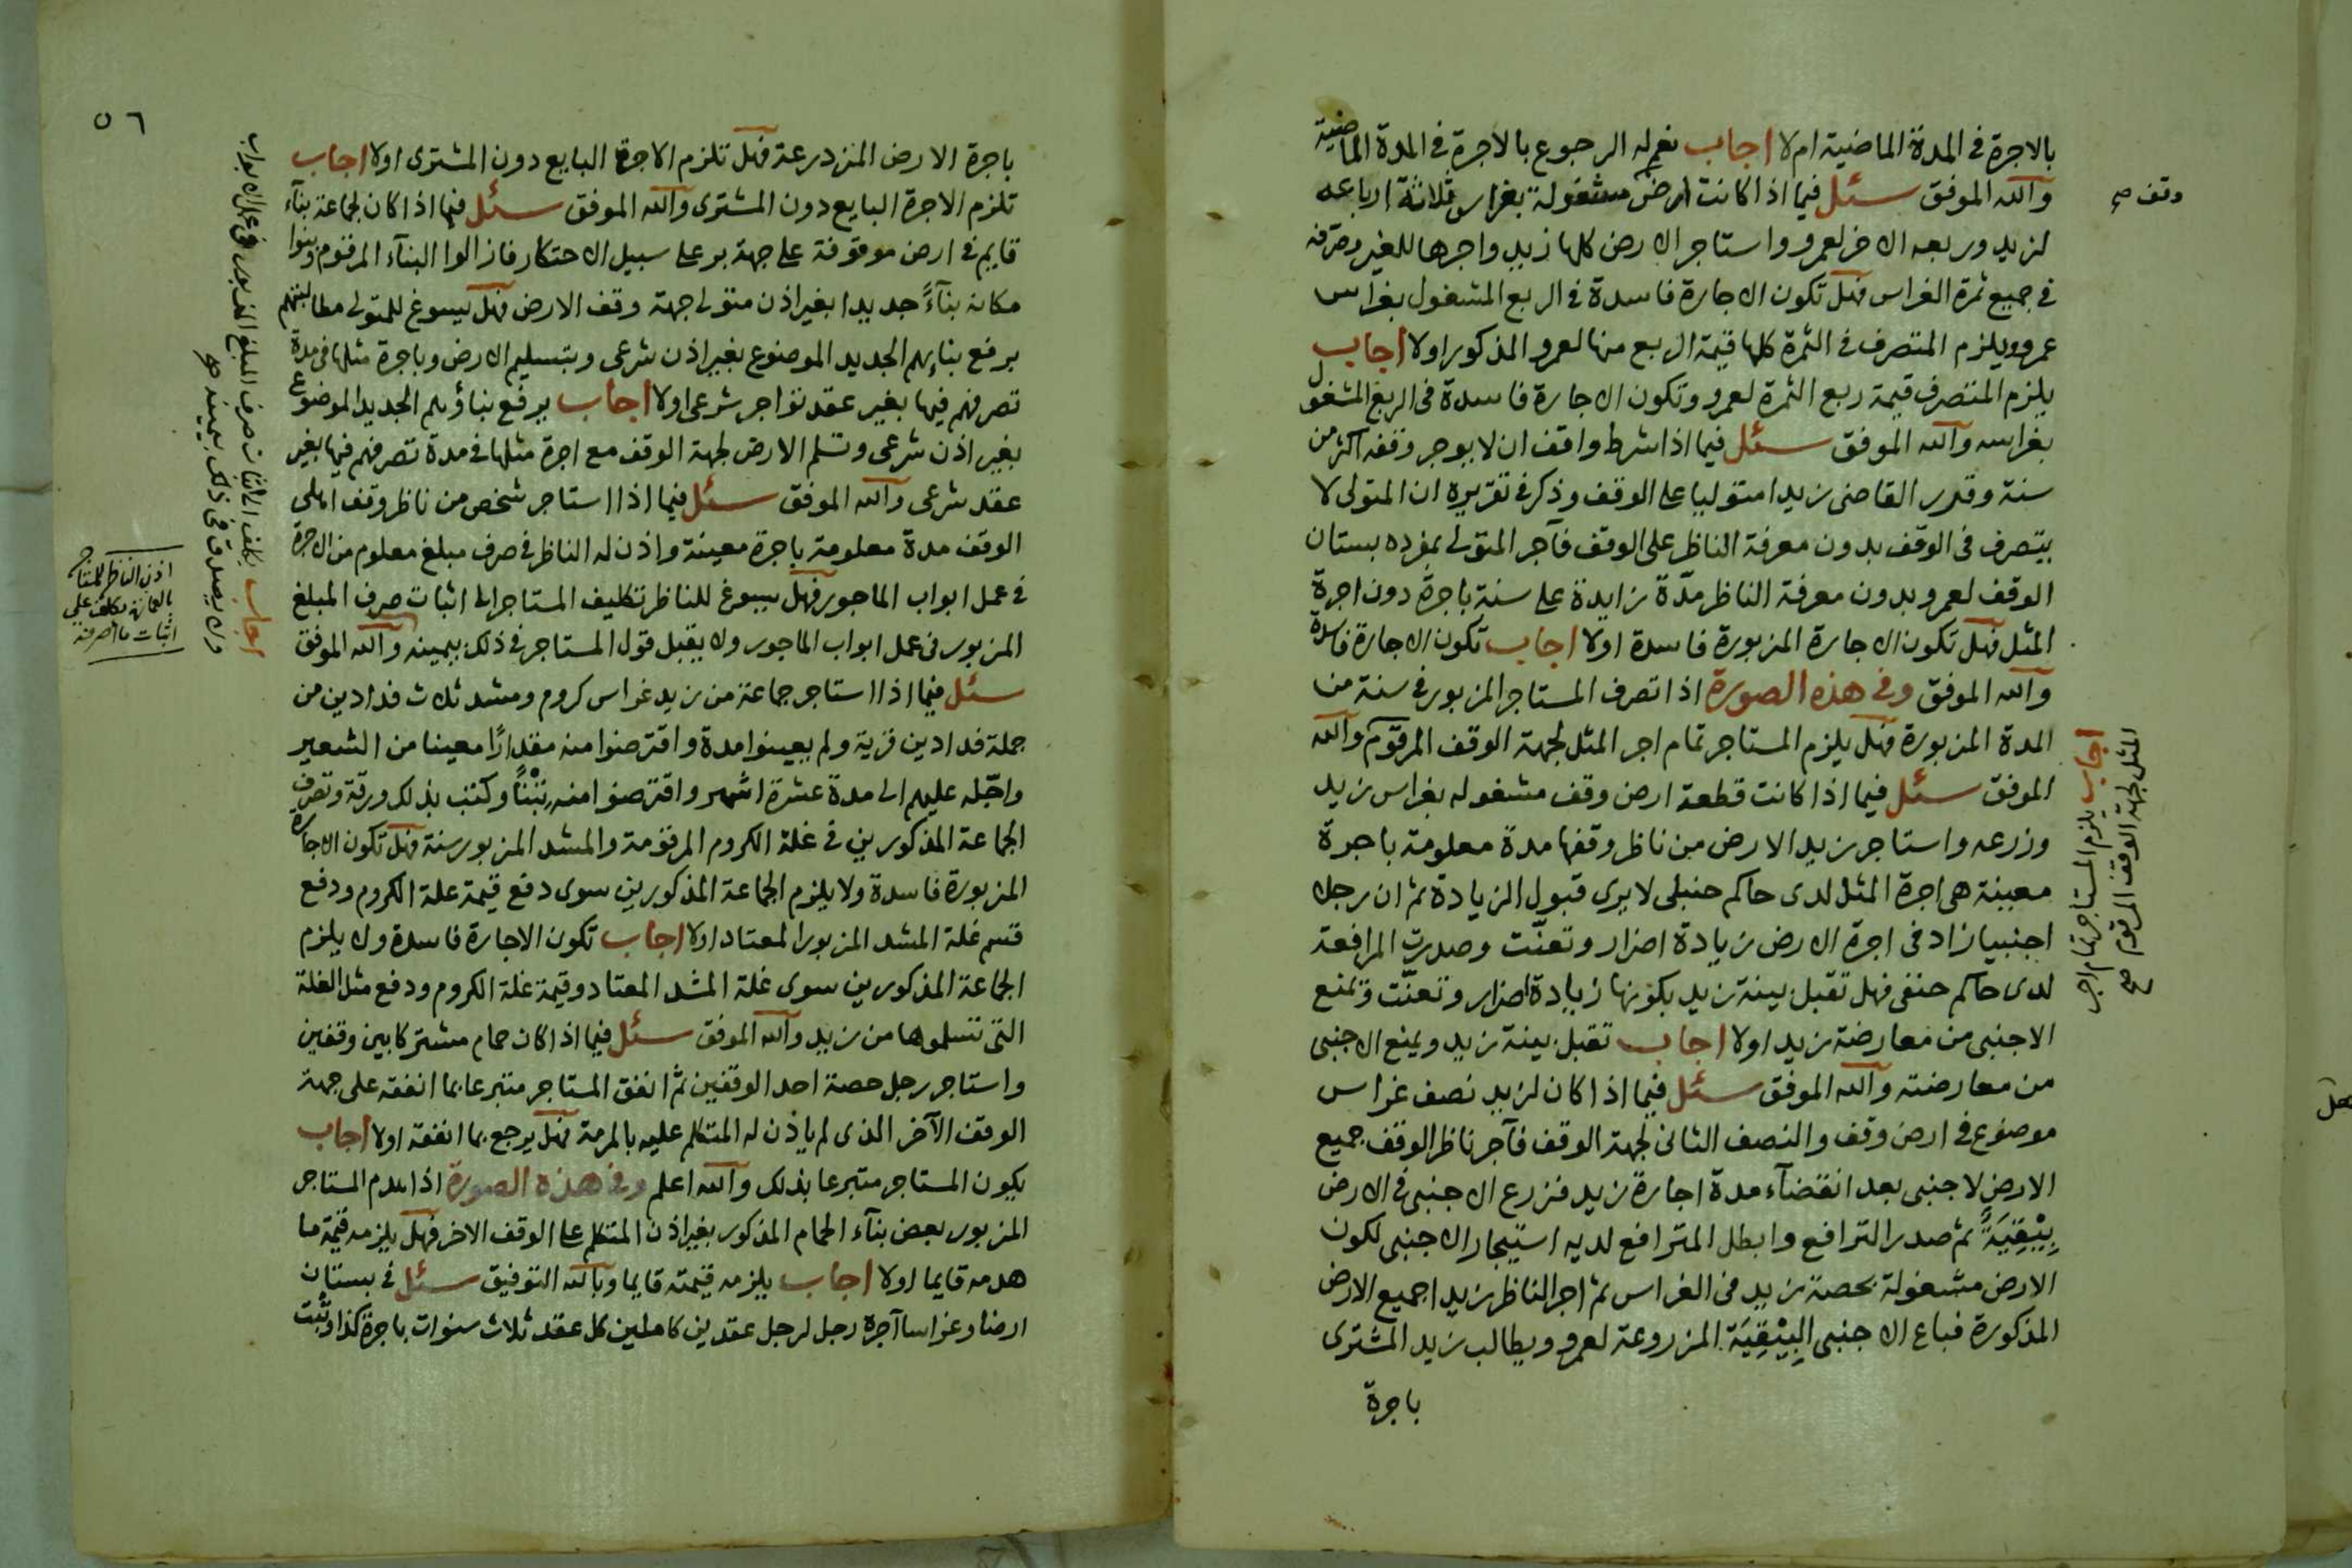 بالاجرة في المدة الماضية ام لا اجاب نعم له الرجوع بالاجرة في المدة الماضية
والله الموفق سئل فيما اذا كانت ارض مشغولة بغراس ثلاثة ارباعه
وقف صح
لزيد وربعه الاخر لعمرو واستاجر الارض كلها زيد واجرها للغير وصرفه
في جميع ثمرة الغراس فهل تكون الاجارة فاسدة في الربع المشغول بغراس
عمرو ويلزم المتصرف في الثمرة كلها قيمة الربع منها لعمرو المذكور اولا اجاب
يلزم المتصرف قيمة ربع الثمرة لعمرو وتكون الاجارة فاسدة في الربع المشغول
بغراسه والله الموفق سئل فيما اذا شرط واقف ان لا يوجر وقفه اكثر من
سنة وقرر القاضي زيدا متوليا على الوقف وذكر في تقريره ان المتولى لا
يتصرف في الوقف بدون معرفة الناظر على الوقف فآجر المتولي بمفرده بستان
الوقف لعمرو بدون معرفة الناظر مدّة زايدة على سنة باجرة دون اجرة
المثل فهل تكون الاجارة المزبورة فاسدة اولا اجاب تكون الاجارة فاسدة
والله الموفق وفي هذه الصورة اذا تصرف المستاجر المزبور في سنة من
المدة المزبورة فهل يلزم المستاجر تمام اجر المثل لجهة الوقف المرقوم والله
اجاب يلزم المستاجر تمام اجر
المثل لجهة الوقف المرقوم صح
الموفق سئل فيما اذا كانت قطعة ارض وقف مشغوله بغراس زيد
وزرعه واستاجر زيد الارض من ناظر وقفها مدة معلومة باجرة
معينة هي اجرة المثل لدى حاكم حنبلى لا يرى قبول الزيادة ثم ان رجلا
اجنبيا زاد في اجرة الارض زيادة اضرار وتعنّت وصدرت المرافعة
لدى حاكم حنفى فهل تقبل بينة زيد بكونها زيادة اضرار وتعنّت وتمنع
الاجنبى من معارضة زيد اولا اجاب تقبل بينة زيد ويمنع الاجنبى
من معارضته والله الموفق سئل فيما اذا كان لزيد نصف غراس
موضوع في ارض وقف والنصف الثانى لجهة الوقف فآجر ناظر الوقف جميع
الارض لاجنبى بعد انقضآء مدة اجارة زيد فزرع الاجنبى في الارض
بِيْقِيَةً ثم صدر الترافع وابطل المترافع لديه استيجار الاجنبى لكون
الارض مشغولة بحصة زيد في الغراس ثم اجر الناظر زيدا جميع الارض
المذكورة فباع الاجنبى البِيْقِيَة المزروعة لعمرو ويطالب زيد المشترى
باجرة
٥٦
باجرة الارض المزدرعة فهل تلزم الاجرة البايع دون المشترى اولا اجاب
تلزم الاجرة البايع دون المشترى والله الموفق سئل فيما اذا كان لجماعة بنآء
قايم في ارض موقوفة على جهة بر على سبيل الاحتكار فازالوا البنآء المرقوم وبنوا
مكانه بنآءً جديدا بغير اذن متولى جهة وقف الارض فهل يسوغ للمتولى مطالبتهم
برفع بنايهم الجديد الموضوع بغير اذن شرعى وبتسليم الارض وباجرة مثلها في مدة
تصرفهم فيها بغير عقد تواجر شرعى اولا اجاب يرفع بناؤهم الجديد الموضوع
بغير اذن شرعى وتسلم الارض لجهة الوقف مع اجرة مثلها في مدة تصرفهم فيها بغير
عقد شرعى والله الموفق سئل فيما اذا استاجر شخص من ناظر وقف اهلى
الوقف مدة معلومة باجرة معينة واذن له الناظر في صرف مبلغ معلوم من الاجرة
في عمل ابواب الماجور فهل يسوغ للناظر تكليف المستاجر الى اثبات صرف المبلغ
المزبور في عمل ابواب الماجور ولا يقبل قول المستاجر في ذلك بيمينه والله الموفق
اجاب يكلف الى اثبات صرف المبلغ المزبور في عمل الابواب
ولا يصدق في ذلك بيمينه صح
اذن الناظر للمستاجر
بالعمارة يكلف على
اثبات ما اصرفه
سئل فيما اذا استاجر جماعة من زيد غراس كروم ومشد ثلاث فدادين من
جملة فدادين قرية ولم يعينوا مدة واقترضوا منه مقدارًا معينا من الشعير
واجّله عليهم الى مدة عشرة اشهر واقترضوا منه تِبْنًا وكتب بذلك ورقة وتصرف
الجماعة المذكورين في غلة الكروم المرقومة والمشد المزبور سنة فهل تكون الاجارة
المزبورة فاسدة ولا يلزم الجماعة المذكورين سوى دفع قيمة غلة الكروم ودفع
قسم غلة المشد المزبور المعتاد اولا اجاب تكون الاجارة فاسدة ولا يلزم
الجماعة المذكورين سوى غلة المشد المعتاد وقيمة غلة الكروم ودفع مثل الغلة
التى تسلموها من زيد والله الموفق سئل فيما اذا كان حمام مشتركا بين وقفين
واستاجر رجل حصة احد الوقفين ثم انفق المستاجر متبرعا بما انفقه على جهة
الوقف الآخر الذى لم ياذن له المتكلم عليه بالمرمة فهل يرجع بما انفقه اولا اجاب
يكون المستاجر متبرعا بذلك والله اعلم وفي هذه الصورة اذا هدم المستاجر
المزبور بعض بنآء الحمام المذكور بغير اذن المتكلم على الوقف الاخر فهل يلزمه قيمة ما
هدمه قايما اولا اجاب يلزمه قيمته قايما وبالله التوفيق سئل في بستان
ارضا وغراسا آجره رجل لرجل عقدين كاملين كل عقد ثلاث سنوات باجرة كذا وثبت